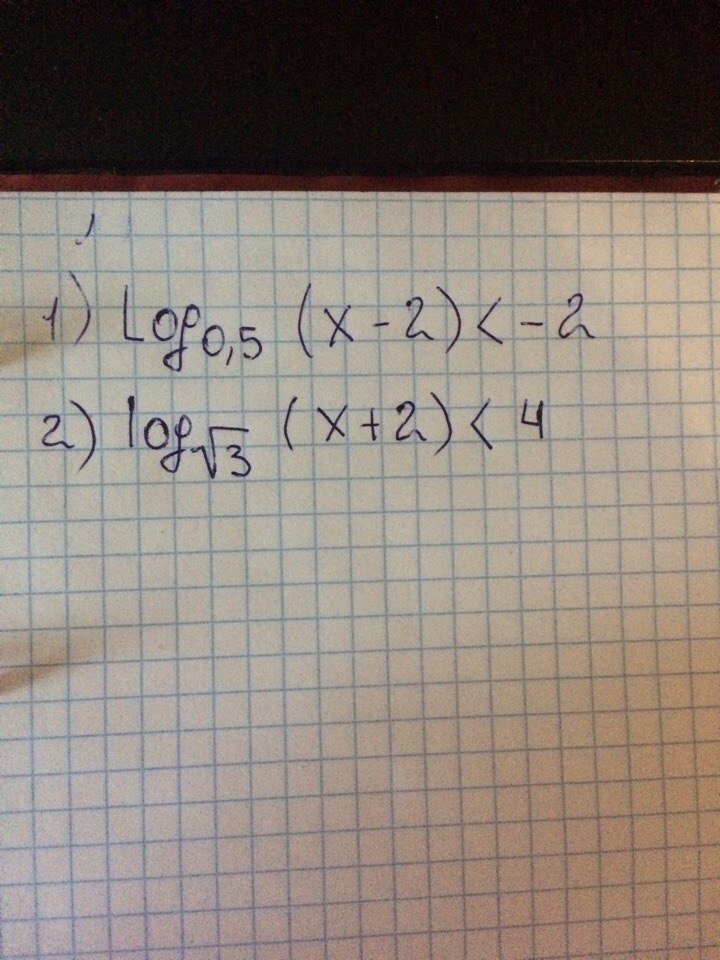 1) Log₀,₅ (x-2) < -2
2) log√3 (x+2) < 4